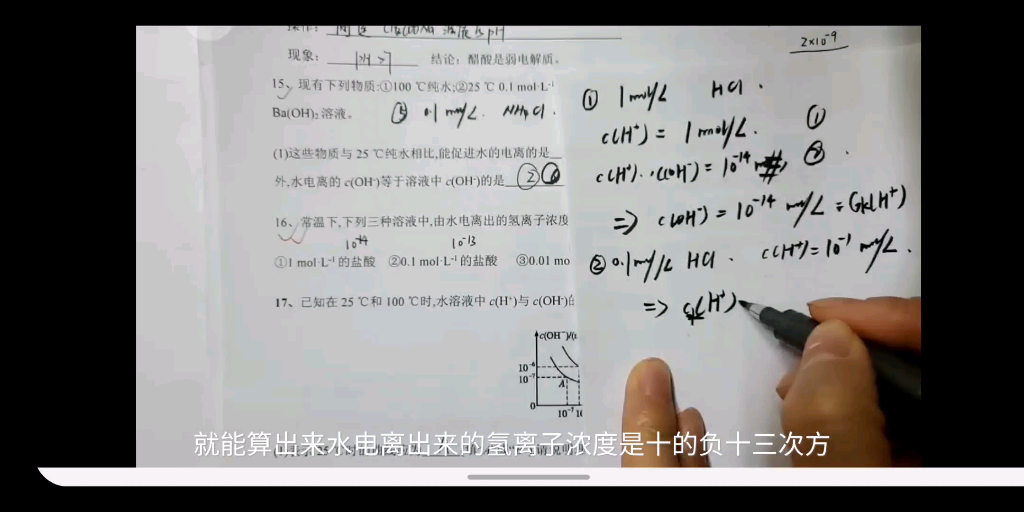 操作： 测定 CH3COONa 溶液的pH
现象： pH>7 结论：醋酸是弱电解质。
15、现有下列物质：①100 ℃纯水；②25 ℃ 0.1 mol·L⁻¹
Ba(OH)₂溶液。 ⑤ 0.1 mol/L NH4Cl.
(1)这些物质与 25 ℃纯水相比，能促进水的电离的是
外，水电离的 c(OH⁻)等于溶液中 c(OH⁻)的是 ②⑥
16、常温下，下列三种溶液中，由水电离出的氢离子浓度
10⁻¹⁴ 10⁻¹³
①1 mol·L⁻¹的盐酸 ②0.1 mol·L⁻¹的盐酸 ③0.01 mo
17、已知在 25 ℃和 100 ℃时，水溶液中 c(H⁺)与 c(OH⁻)的
c(OH⁻)/(
10⁻⁶
10⁻⁷
A
0
10⁻⁷ 10
2×10⁻⁹
① 1 mol/L HCl.
c(H⁺) = 1 mol/L. ①
c(H⁺)·c(OH⁻) = 10⁻¹⁴ ②.
=> c(OH⁻) = 10⁻¹⁴ mol/L = c水(H⁺)
② 0.1 mol/L HCl. c(H⁺) = 10⁻¹ mol/L.
=> c水(H⁺)
就能算出来水电离出来的氢离子浓度是十的负十三次方